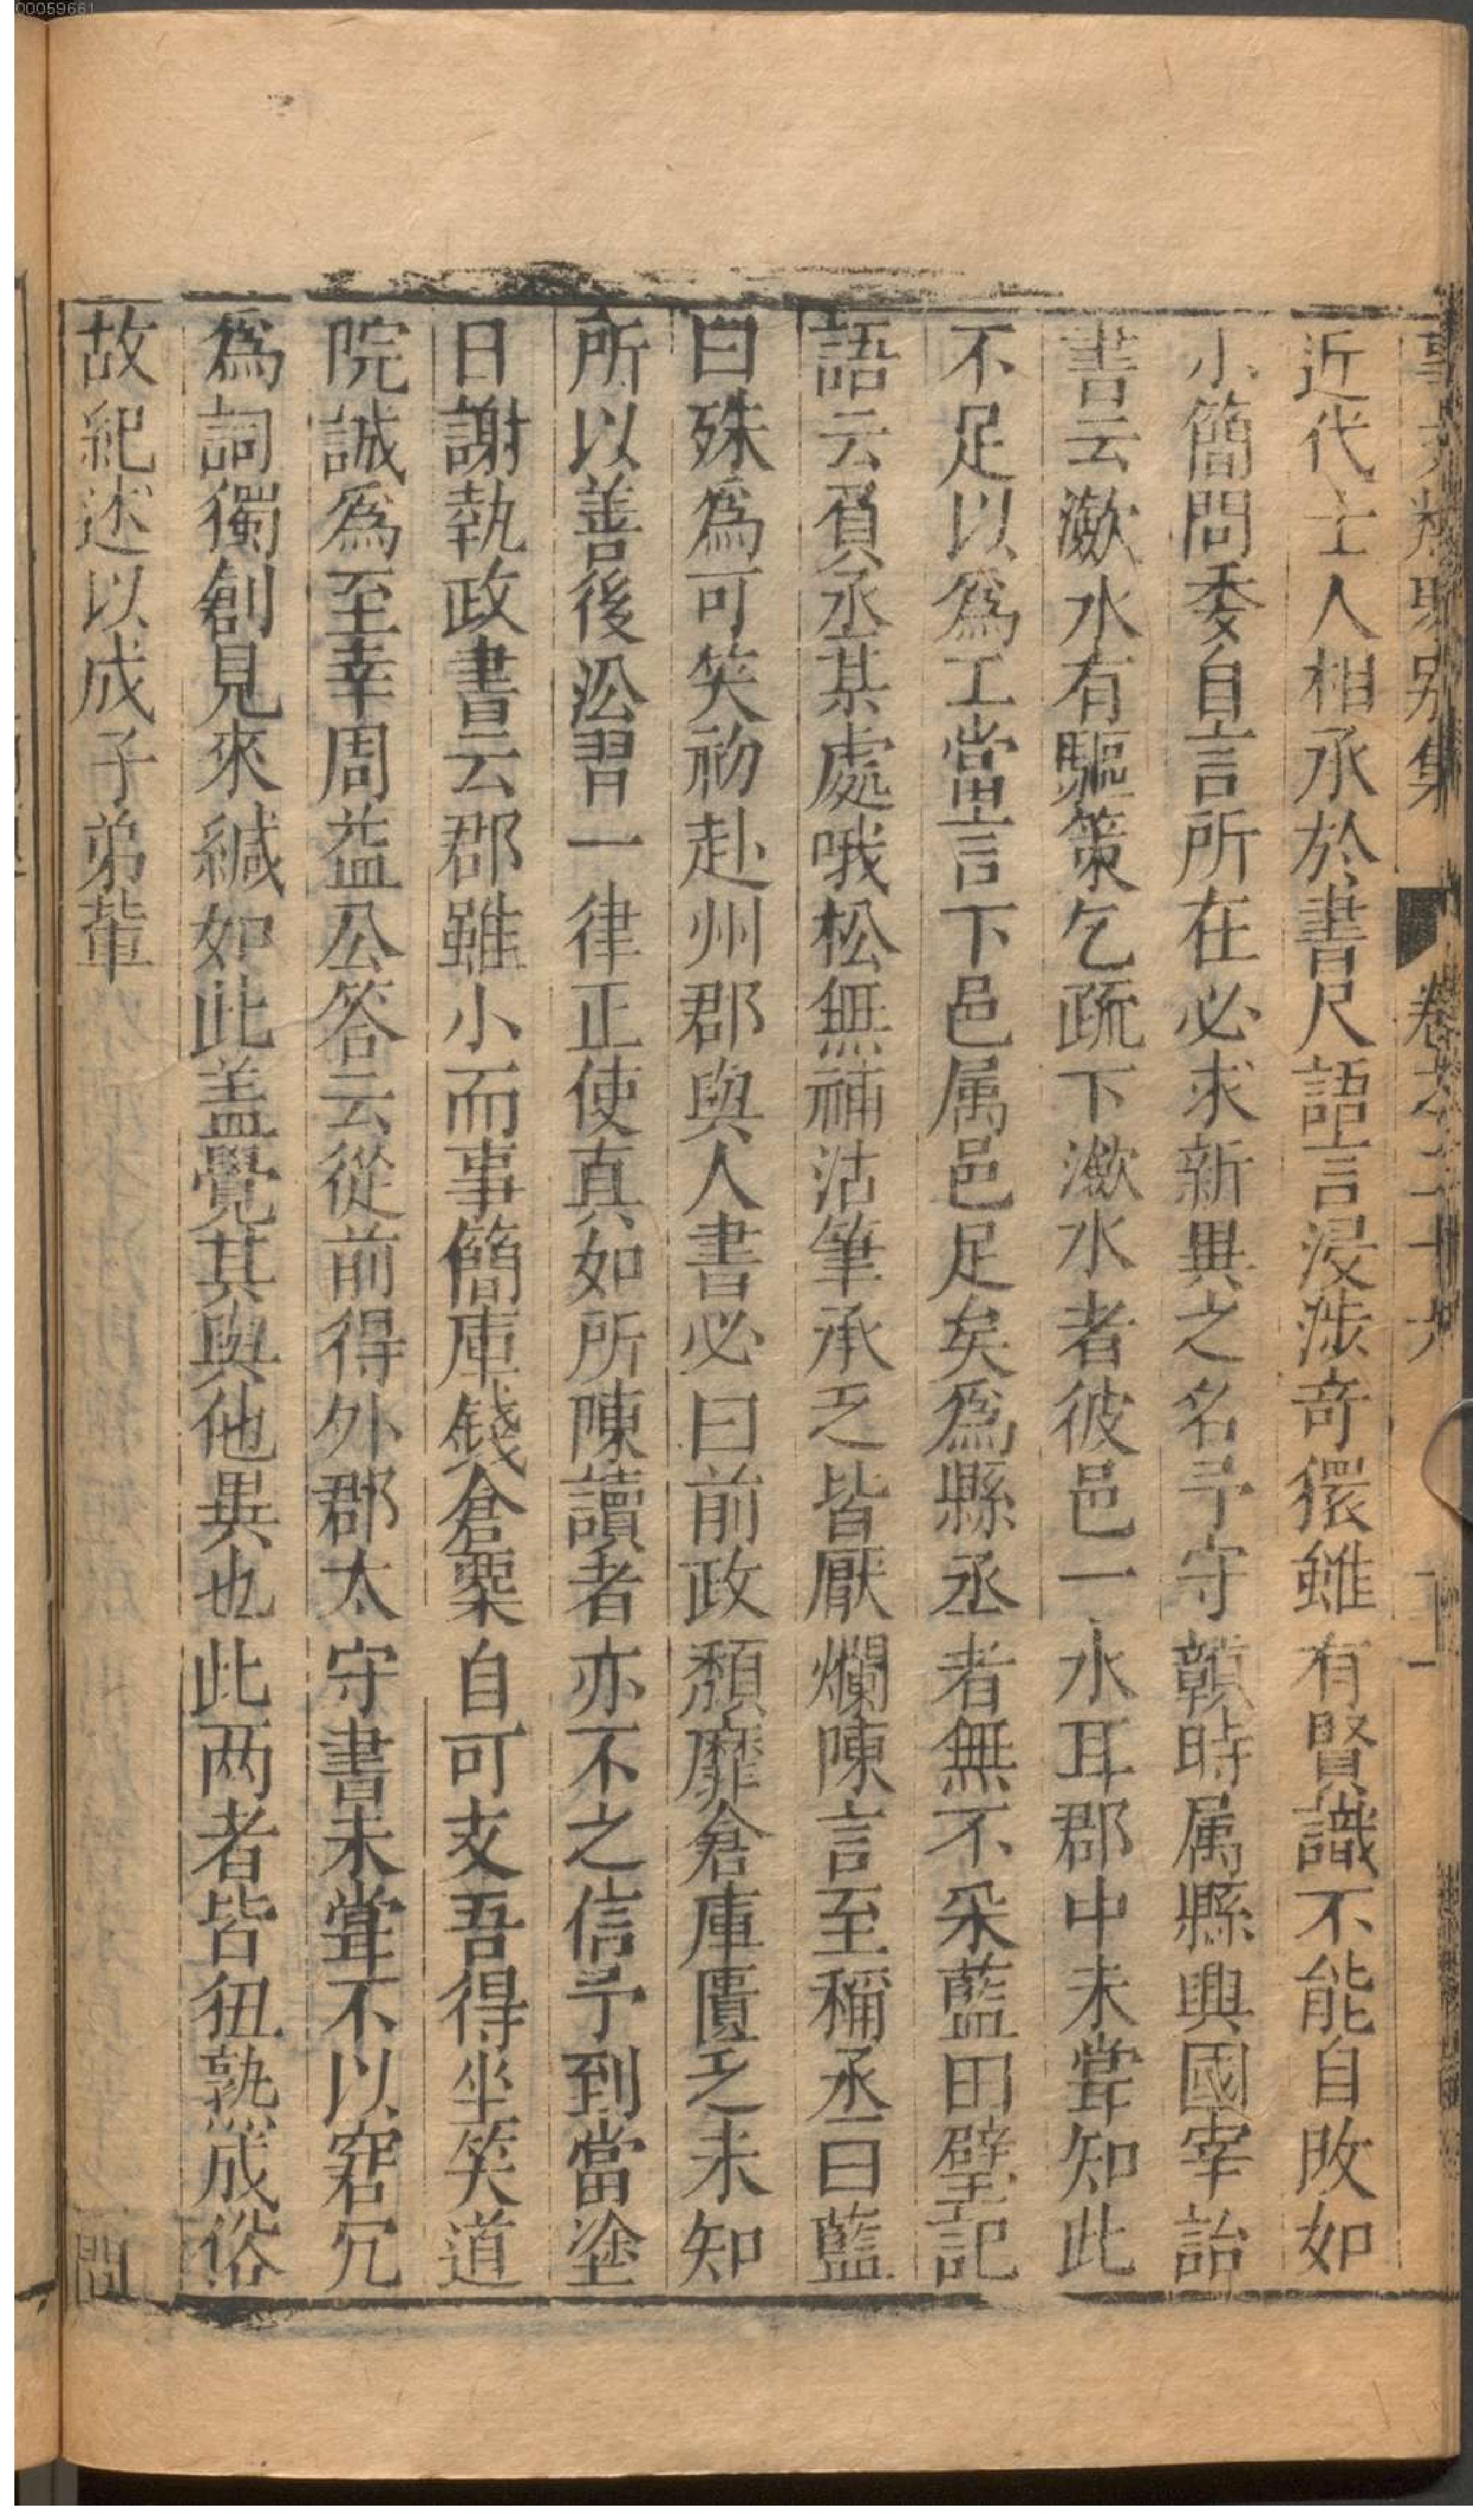 00059661
近代士人相承於書尺語言浸涉奇獧雖有賢識不能自改如
小簡問委自言所在必求新異之名予守贑時属縣興國宰詒
書云瀲水有驅策乞疏下瀲水者彼邑一水耳郡中未甞知此
不足以為工當言下邑属邑足矣為縣丞者無不采藍田壁記
語云負丞某處哦松無補沽筆承乏皆厭爛陳言至稱丞曰藍
曰殊為可笑初赴州郡與人書必曰前政頽靡倉庫匱乏未知
所以善後㳂習一律正使真如所陳讀者亦不之信予到當塗
日謝執政書云郡雖小而事簡庫錢倉粟自可支吾得坐笑道
院誠為至幸周益公答云從前得外郡太守書未甞不以窘冗
為詞獨創見來緘如此盖覺其與他異也此两者皆狃熟成俗
故紀述以戒子弟輩